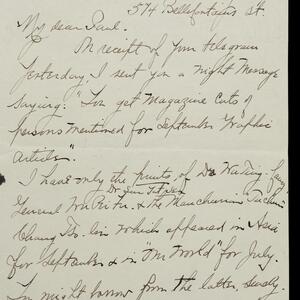 574 Bellefontaine St.
My dear Paul.
In receipt of your telegram
yesterday, I sent you a night message
saying: "You get Magazine Cuts of
persons mentioned for September Graphic
article".
I have only the prints of Dr Wu Ting-fang,
Dr Sun Yat Sen
General Wu Pei Fu, & the Manchurian Tuchun
Chang Tso-lin which appeared in Asia
for September & in "Our World" for July.
You might borrow from the latter, surely.